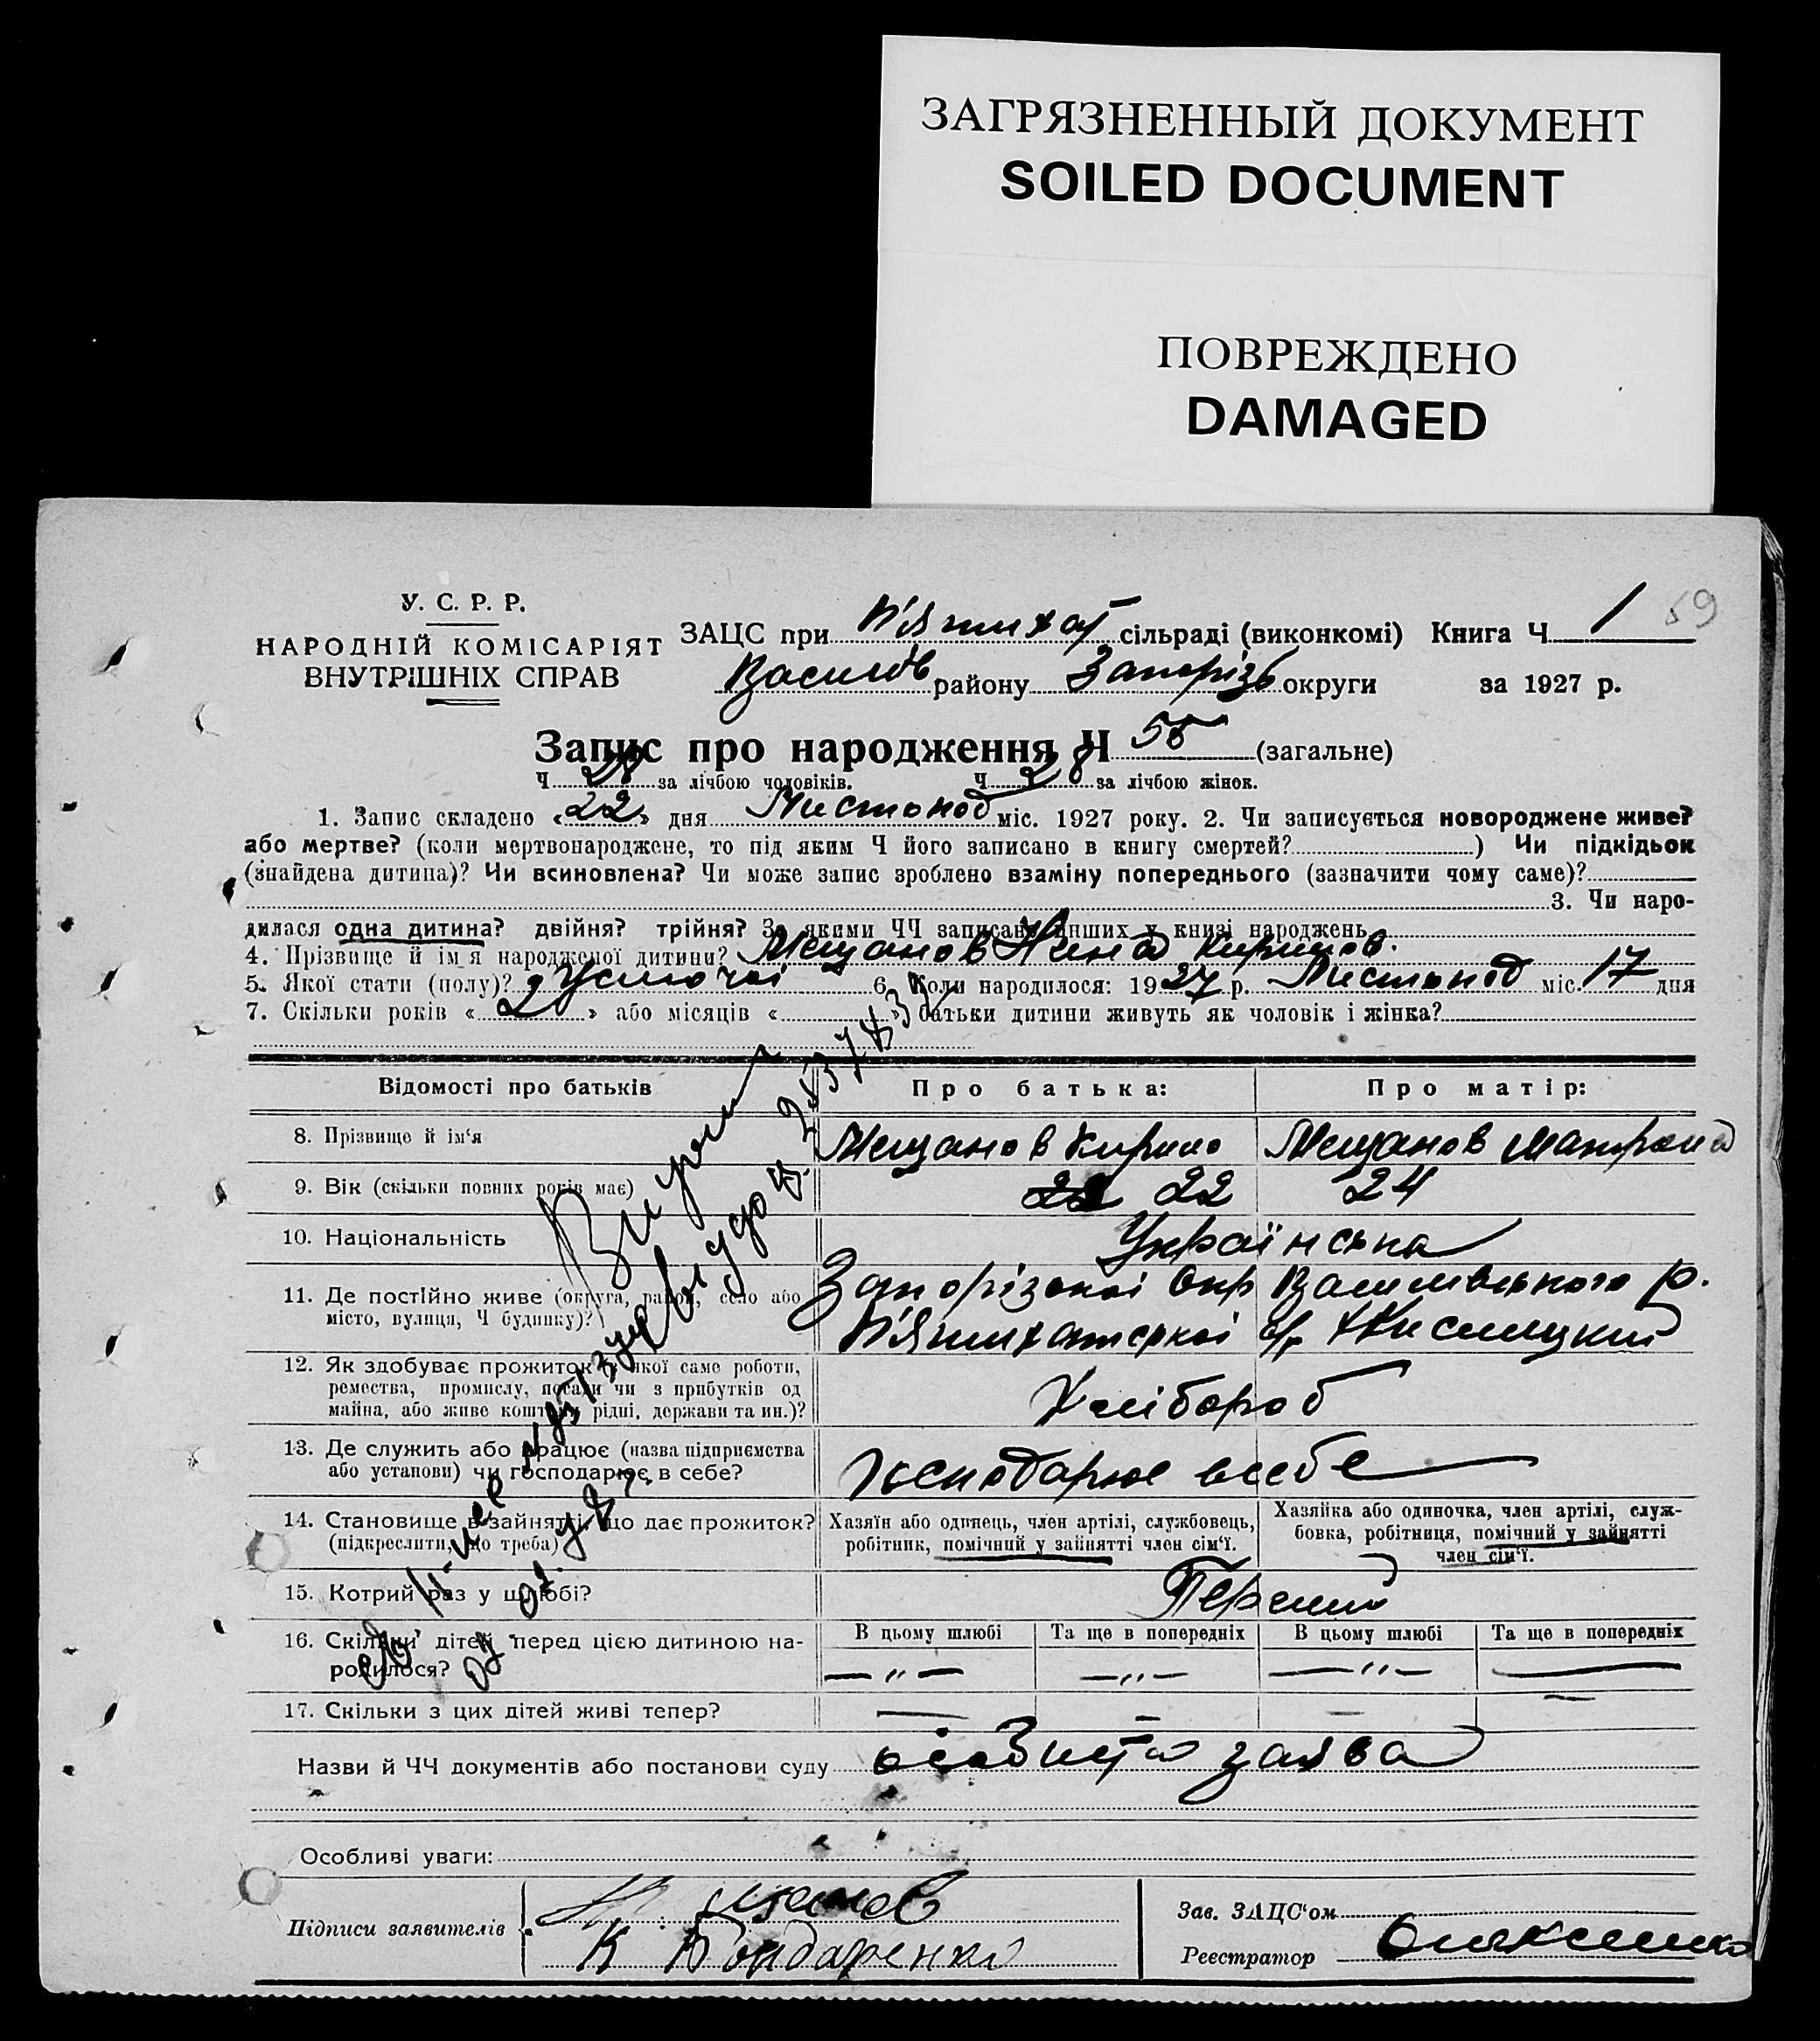 ЗАГРЯЗНЕННЫЙ ДОКУМЕНТ
SOILED DOCUMENT
ПОВРЕЖДЕНО
DAMAGED
У. С. Р. Р.
НАРОДНІЙ КОМІСАРІЯТ
ВНУТРІШНІХ СПРАВ
ЗАЦС при П'ятихат сільраді (виконкомі) Книга Ч 1 59
Василів району Запорізь округи за 1927 р.
Запис про народження Ч 55 (загальне)
Ч за лічбою чоловіків. Ч 28 за лічбою жінок.
1. Запис складено «22» дня Листопад міс. 1927 року. 2. Чи записується новороджене живе?
або мертве? (коли мертвонароджене, то під яким Ч його записано в книгу смертей? ) Чи підкідьок
(знайдена дитина)? Чи всиновлена? Чи може запис зроблено взаміну попереднього (зазначити чому саме)?
3. Чи наро-
дилася одна дитина? двійня? трійня? За якими ЧЧ записано инших у книзі народжень
4. Прізвище й ім'я народженої дитини? Мещанов Нина Кирилов.
5. Якої стати (полу)? Жіночої 6. Коли народилося: 1927 р. Листопад міс. 17 дня
7. Скільки років « 2 » або місяців « » батьки дитини живуть як чоловік і жінка?
Відомості про батьків Про батька: Про матір:
8. Прізвище й ім'я Мещанов Кирило Мещанов Матрона
9. Вік (скільки повних років має) 22 24
10. Національність Українська
11. Де постійно живе (округа, район, село або Запорізької Окр Василівського р.
місто, вулиця, Ч будинку)? П'ятихатської с/р
12. Як здобуває прожиток (з якої саме роботи,
ремества, промислу, посади чи з прибутків од
майна, або живе коштом рідні, держави та ин.)? Хлібороб
13. Де служить або працює (назва підприємства
або установи) чи господарює в себе? господарює всебе
14. Становище в зайнятті, що дає прожиток? Хазяїн або одинець, член артілі, службовець, Хазяйка або одиночка, член артілі, служ-
(підкреслити, що треба) робітник, помічний у зайнятті член сім'ї. бовка, робітниця, помічний у зайнятті
член сім'ї.
15. Котрий раз у шлюбі? Перший
16. Скільки дітей перед цією дитиною на- В цьому шлюбі Та ще в попередніх В цьому шлюбі Та ще в попередніх
родилося? — " — — " — — " — —
17. Скільки з цих дітей живі тепер? — — — —
Назви й ЧЧ документів або постанови суду особиста заява
Особливі уваги:
Підписи заявителів
К Бондаренко
Зав. ЗАЦС'ом
Реєстратор